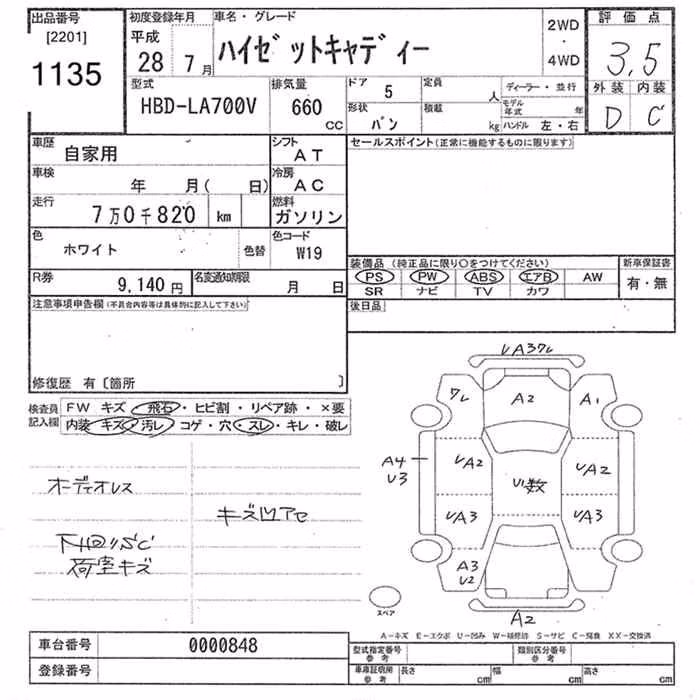 出品番号
[2201]
1135
初度登録年月
平成
28 7月
車名・グレード
ハイゼットキャディー
2WD
・
4WD
評価点
3.5
外装 内装
D C
型式
HBD-LA700V
排気量
660
CC
ドア 5
形状
バン
定員
人
積載
kg
ディーラー・並行
モデル年式 年
ハンドル 左・右
車歴
自家用
シフト
AT
車検
年 月( 日)
冷房
AC
走行
7万0千820 km
燃料
ガソリン
色
ホワイト
色替
色コード
W19
R券
9,140円
名変通知期限
月 日
セールスポイント(正常に機能するものに限ります)
装備品 (純正品に限り○をつけてください)
PS PW ABS エアB AW
SR ナビ TV カワ
新車保証書
有・無
後日品
注意事項申告欄(不具合内容等は具体的に記入して下さい)
修復歴 有〔箇所 〕
検査員
記入欄
FW キズ・飛石・ヒビ割・リペア跡・×要
内装 キズ・汚レ・コゲ・穴・スレ・キレ・破レ
オーディオレス
キズ凹アセ
下回りSC
荷室キズ
A2
A1
A4
U3
UA2
U数
UA2
UA3
UA3
A3
U2
スペア
A2
A-キズ E-エクボ U-凹み W-補修跡 S-サビ C-腐食 XX-交換済
車台番号
0000848
登録番号
型式指定番号
参考
類別区分番号
参考
車庫証明用
参考
長さ cm
幅 cm
高さ cm